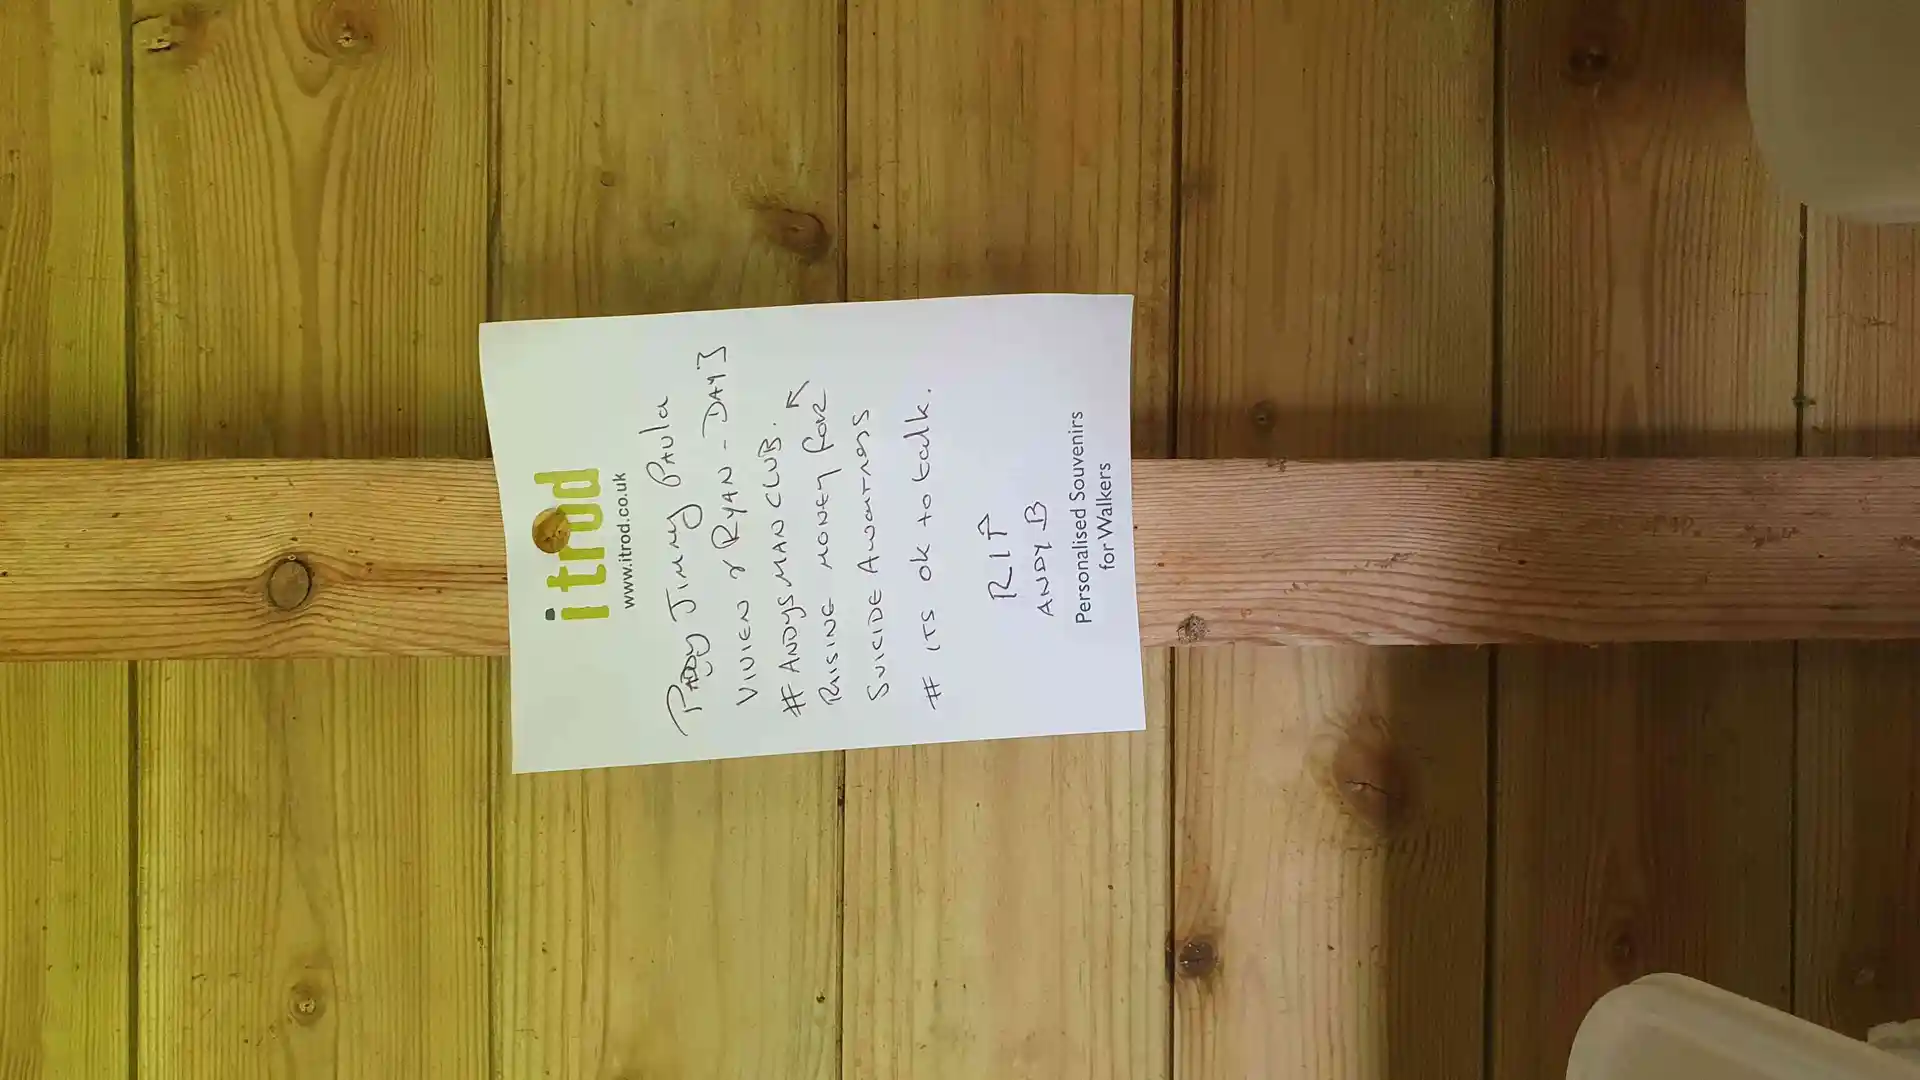 itrod
www.itrod.co.uk
PADDY JIMMY PAULA
VIVIEN & RYAN - DAY 3
# ANDYSMANCLUB.
RAISING MONEY FOR
SUICIDE AWARNESS
# ITS OK to talk.
RIP
ANDY B
Personalised Souvenirs
for Walkers